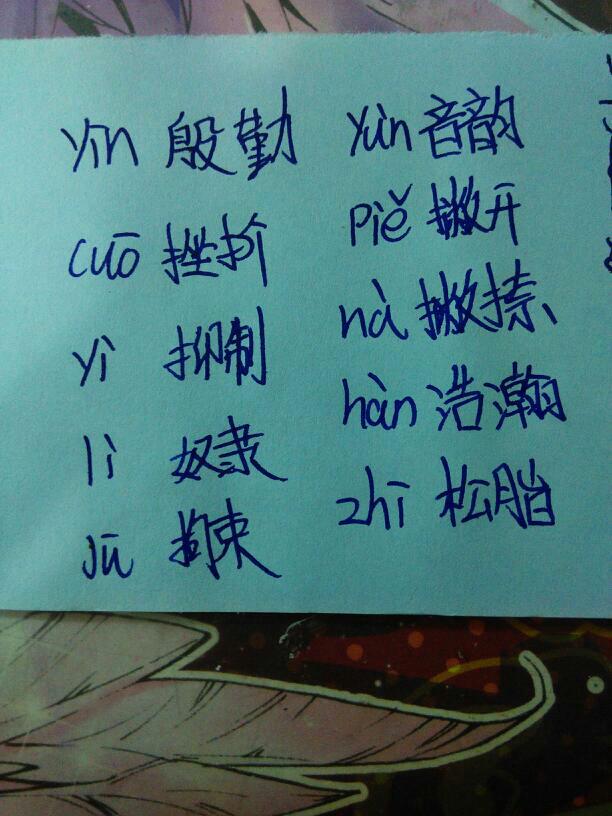 yīn 殷勤
cuō 挫折
yì 抑制
lì 奴隶
jū 拘束
yùn 音韵
piě 撇开
nà 撇捺、
hàn 浩瀚
zhī 松脂